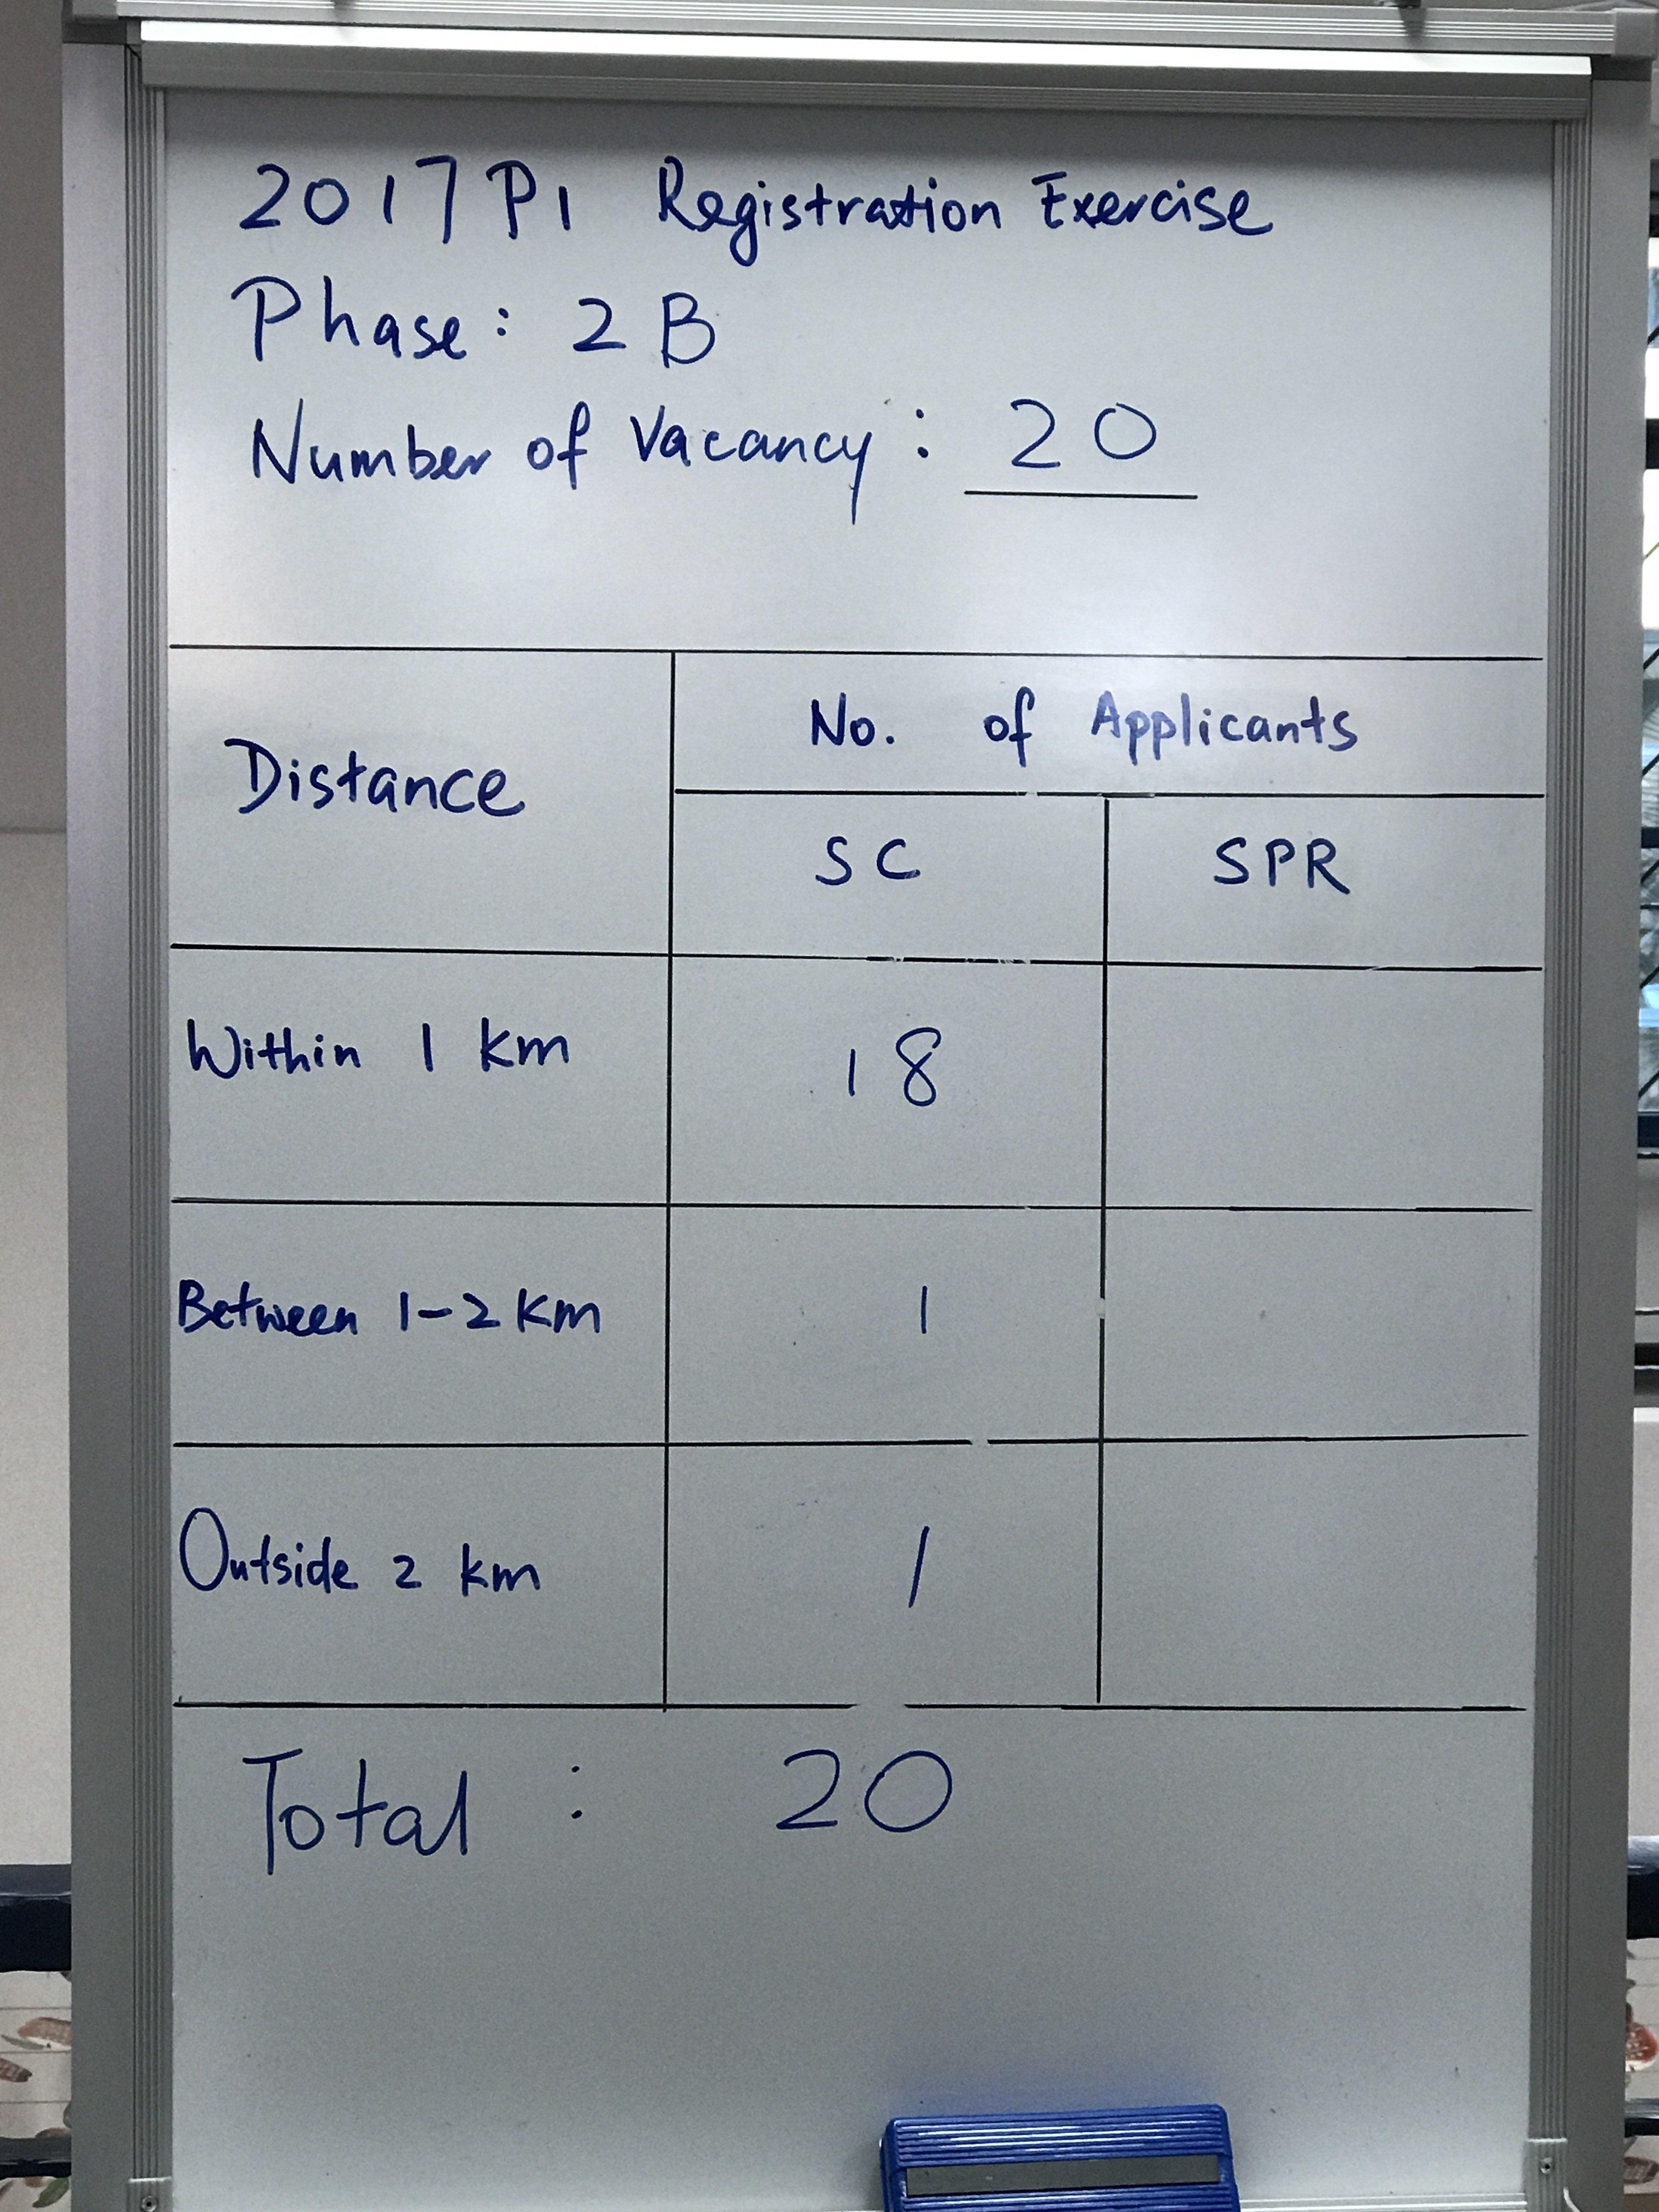 2017 P1 Registration Exercise
Phase: 2B
Number of Vacancy: 20
Distance
No. of Applicants
SC SPR
Within 1 km 18
Between 1-2 km 1
Outside 2 km 1
Total: 20